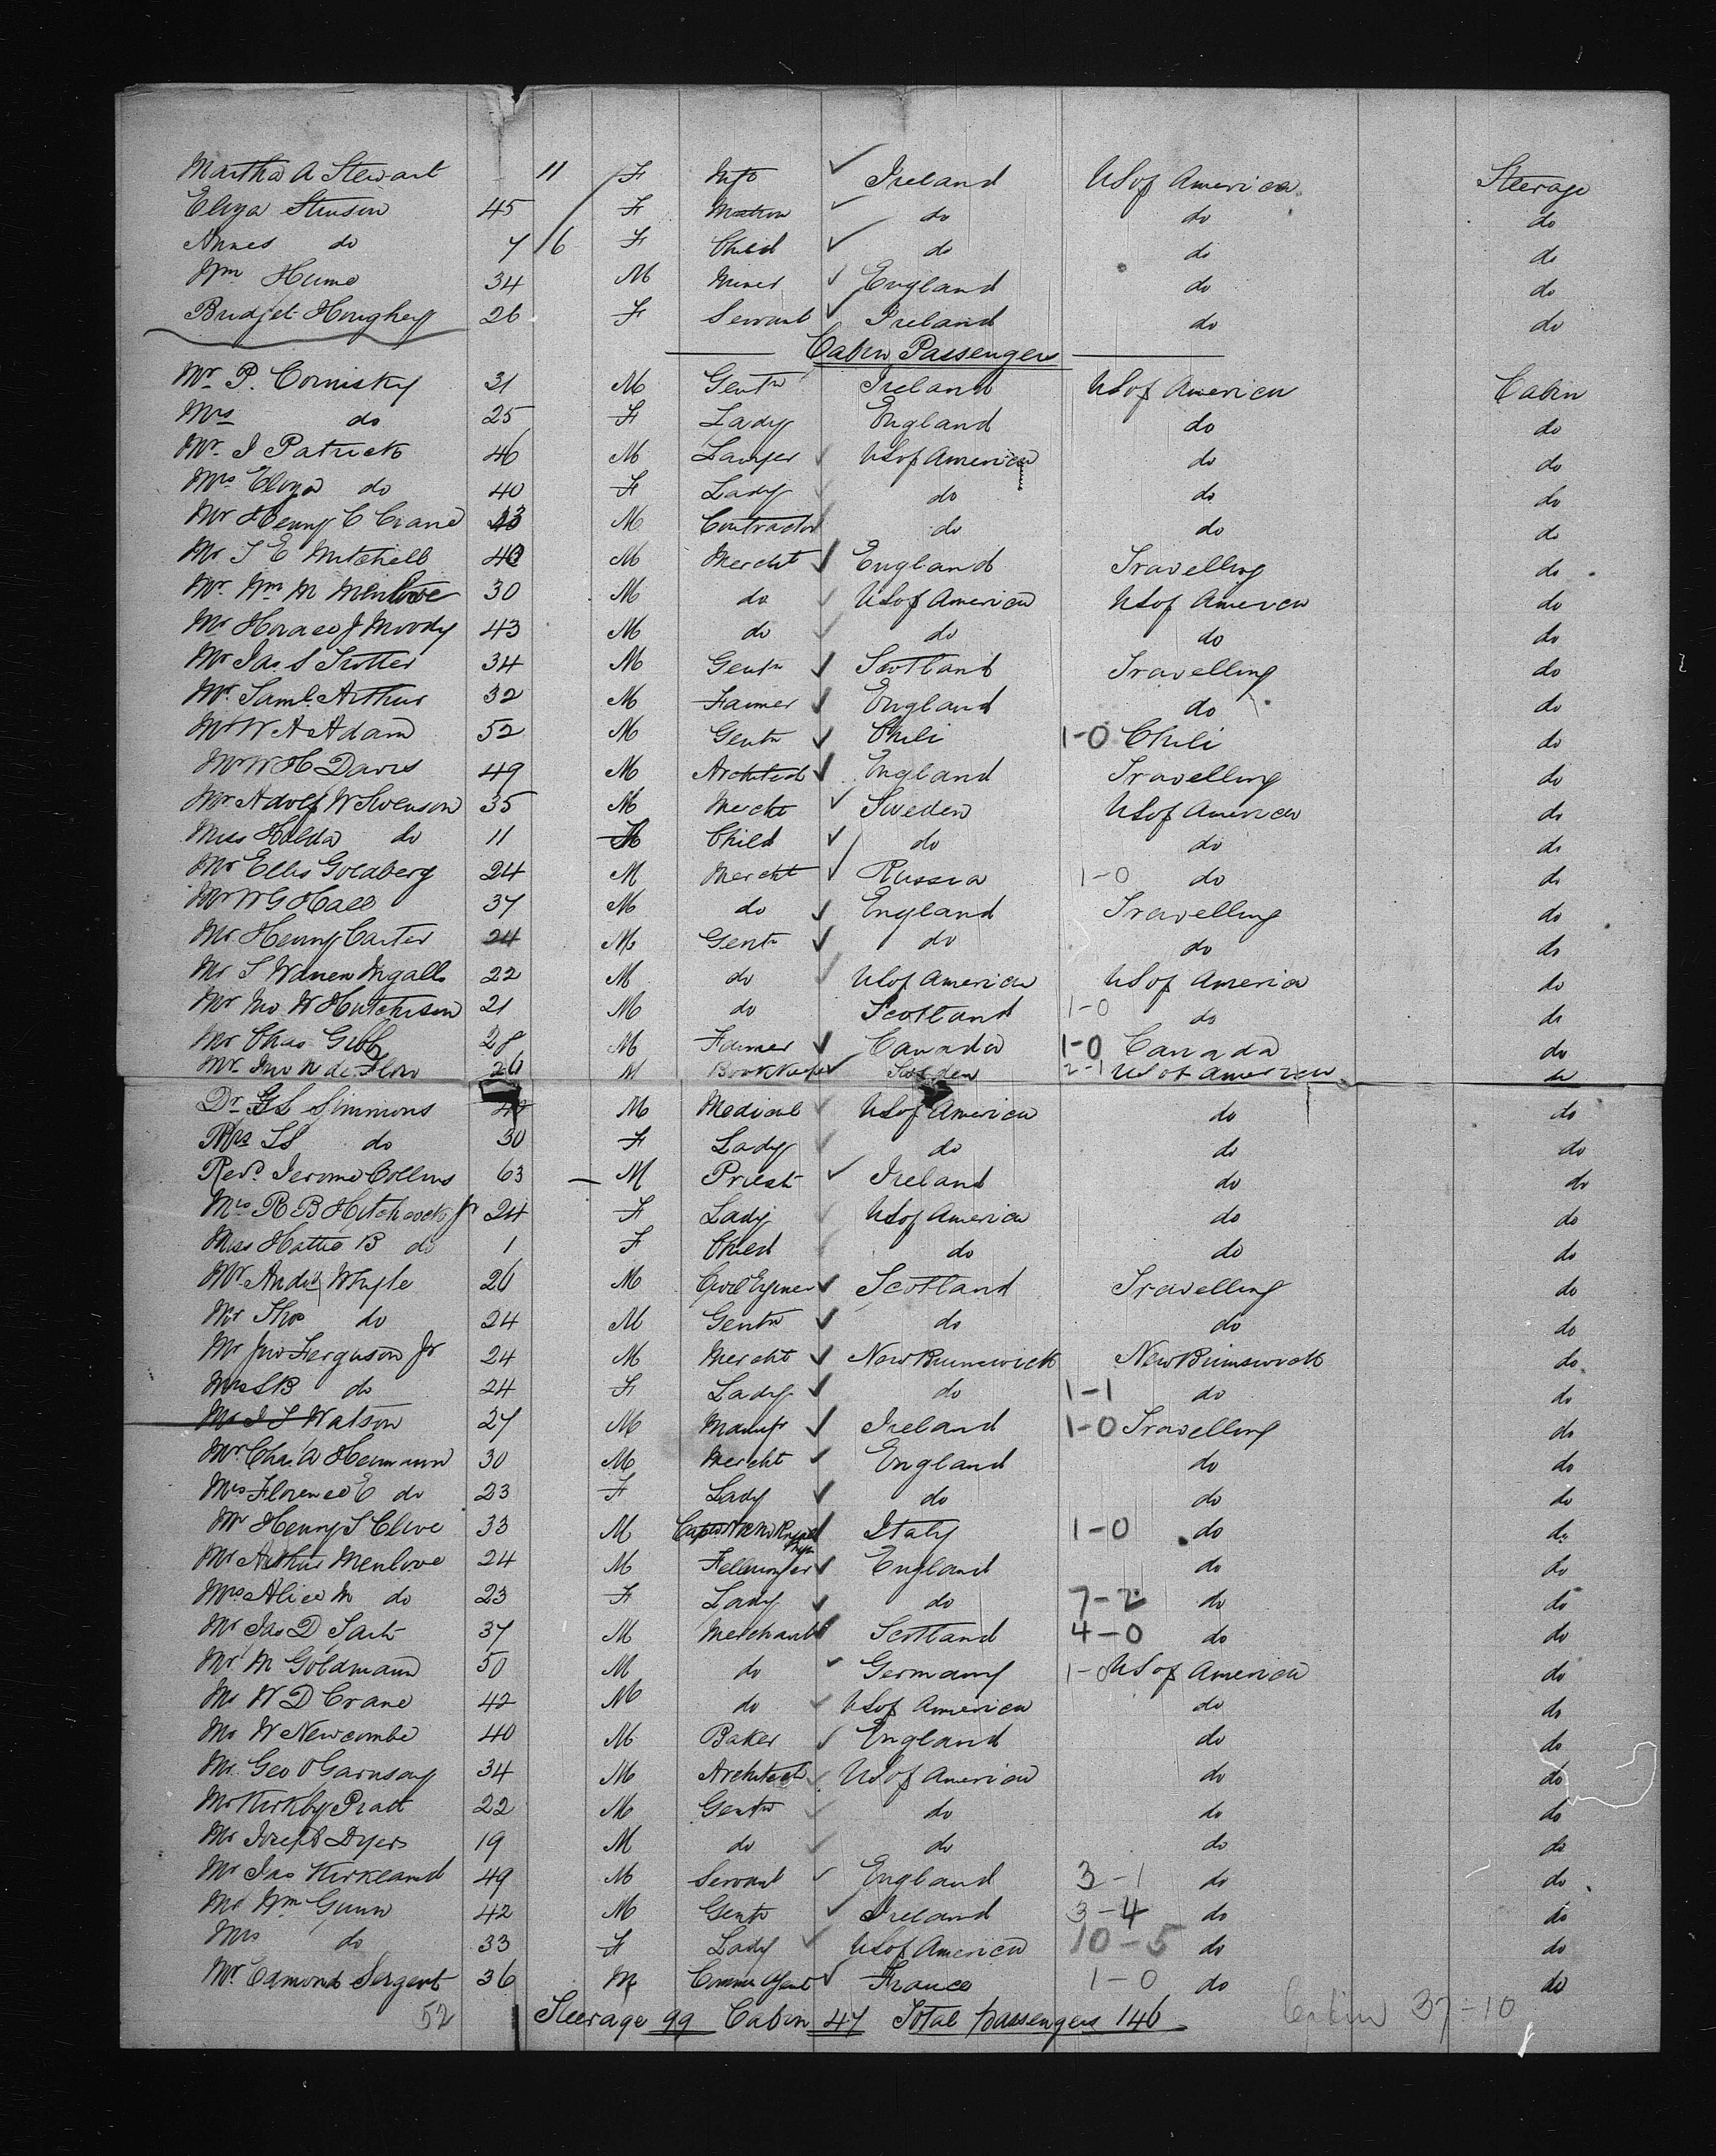 Martha A Stewart 11 F Inft Ireland US of America Steerage
Eliza Stinson 45 F Matron do do do
Annes do 7 /6 F Child do do do
Wm Hume 34 M Miner England do do
Bridjet Houghey 26 F Servant Ireland do do
Cabin Passengers
Mr P. Cornisky 31 M Gentn Ireland US of America Cabin
Mrs do 25 F Lady England do do
Mr J Patrick 46 M Lawyer US of America do do
Mrs Eliza do 40 F Lady do do do
Mr Henry C Crane M Contractor do do do
Mr T E Mitchell 40 M Mercht England Travelling do
Mr Wm M Menlove 30 M do US of America US of America do
Mr Horace J Moody 43 M do do do do
Mr Jas S Trotter 34 M Gentn Scotland Travelling do
Mr Saml Arthur 32 M Farmer England do do
Mr W A Adam 52 M Gentn Chili 1-0 Chili do
Mr W H Davis 49 M Architect England Travelling do
Mr Adolf W Swenson 35 M Mercht Sweden US of America do
Miss Hulda do 11 Child do do do
Mr Ellis Goldberg 24 M Mercht Russia 1-0 do do
Mr W G Hall 37 M do England Travelling do
Mr Henry Carter 24 M Gentn do do do
Mr S Warren Ingalls 22 M do US of America US of America do
Mr Jno W Hutchison 21 M do Scotland 1-0 do do
Mr Chas Gibb 28 M Farmer Canada 1-0 Canada do
Mr Jno N de 26 M Bookkeeper Sweden 2-1 US of America do
Dr G L Simmons M Medical US of America do do
Mrs do 30 F Lady do do do
Revd Jerome Collins 63 M Priest Ireland do do
Mrs R B Hitchcock Jr 24 F Lady US of America do do
Miss Hattie B do 1 F Child do do do
Mr Andw Whyte 26 M Civil Enginer Scotland Travelling do
Mr Thos do 24 M Gentn do do do
Mr Jno Ferguson Jr 24 M Mercht New Brunswick New Brunswick do
Mrs S B do 24 F Lady do 1-1 do do
Mr J S Watson 27 M Manufr Ireland 1-0 Travelling do
Mr Chas A Hermann 30 M Mercht England do do
Mrs Florence E do 23 F Lady do do do
Mr Henry S Clive 33 M Italy 1-0 do do
Mr Arthur Menlove 24 M Fellmonger England do do
Mrs Alice M do 23 F Lady do 7-2 do do
Mr Jas D 37 M Merchant Scotland 4-0 do do
Mr M Goldmann 50 M do Germany 1-0 US of America do
Mr W D Crane 42 M do US of America do do
Mr W Newcombe 40 M Baker England do do
Mr Geo O Garnsey 34 M Architect US of America do do
Mr Kirkby Pratt 22 M Gentn do do do
Mr Joseph Dyers 19 M do do do do
Mr Jas Kirkland 49 M Servant England 3-1 do do
Mr Wm Gunn 42 M Gentn Ireland 3-4 do do
Mrs do 33 F Lady US of America 10-5 do do
Mr Edmond Sergent 36 M Commn Agent France 1-0 do do
52 Steerage 99 Cabin 47 Total passengers 146 Cabin 37-10